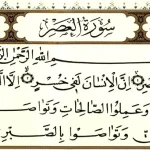 سُورَةُ الْعَصْرِ
بِسْمِ اللهِ الرَّحْمَنِ
إِنَّ الْإِنْسَانَ لَفِي خُسْرٍ إِلَّا
وَعَمِلُوا الصَّالِحَاتِ وَتَوَاصَ
وَتَوَاصَوْا بِالصَّبْرِ